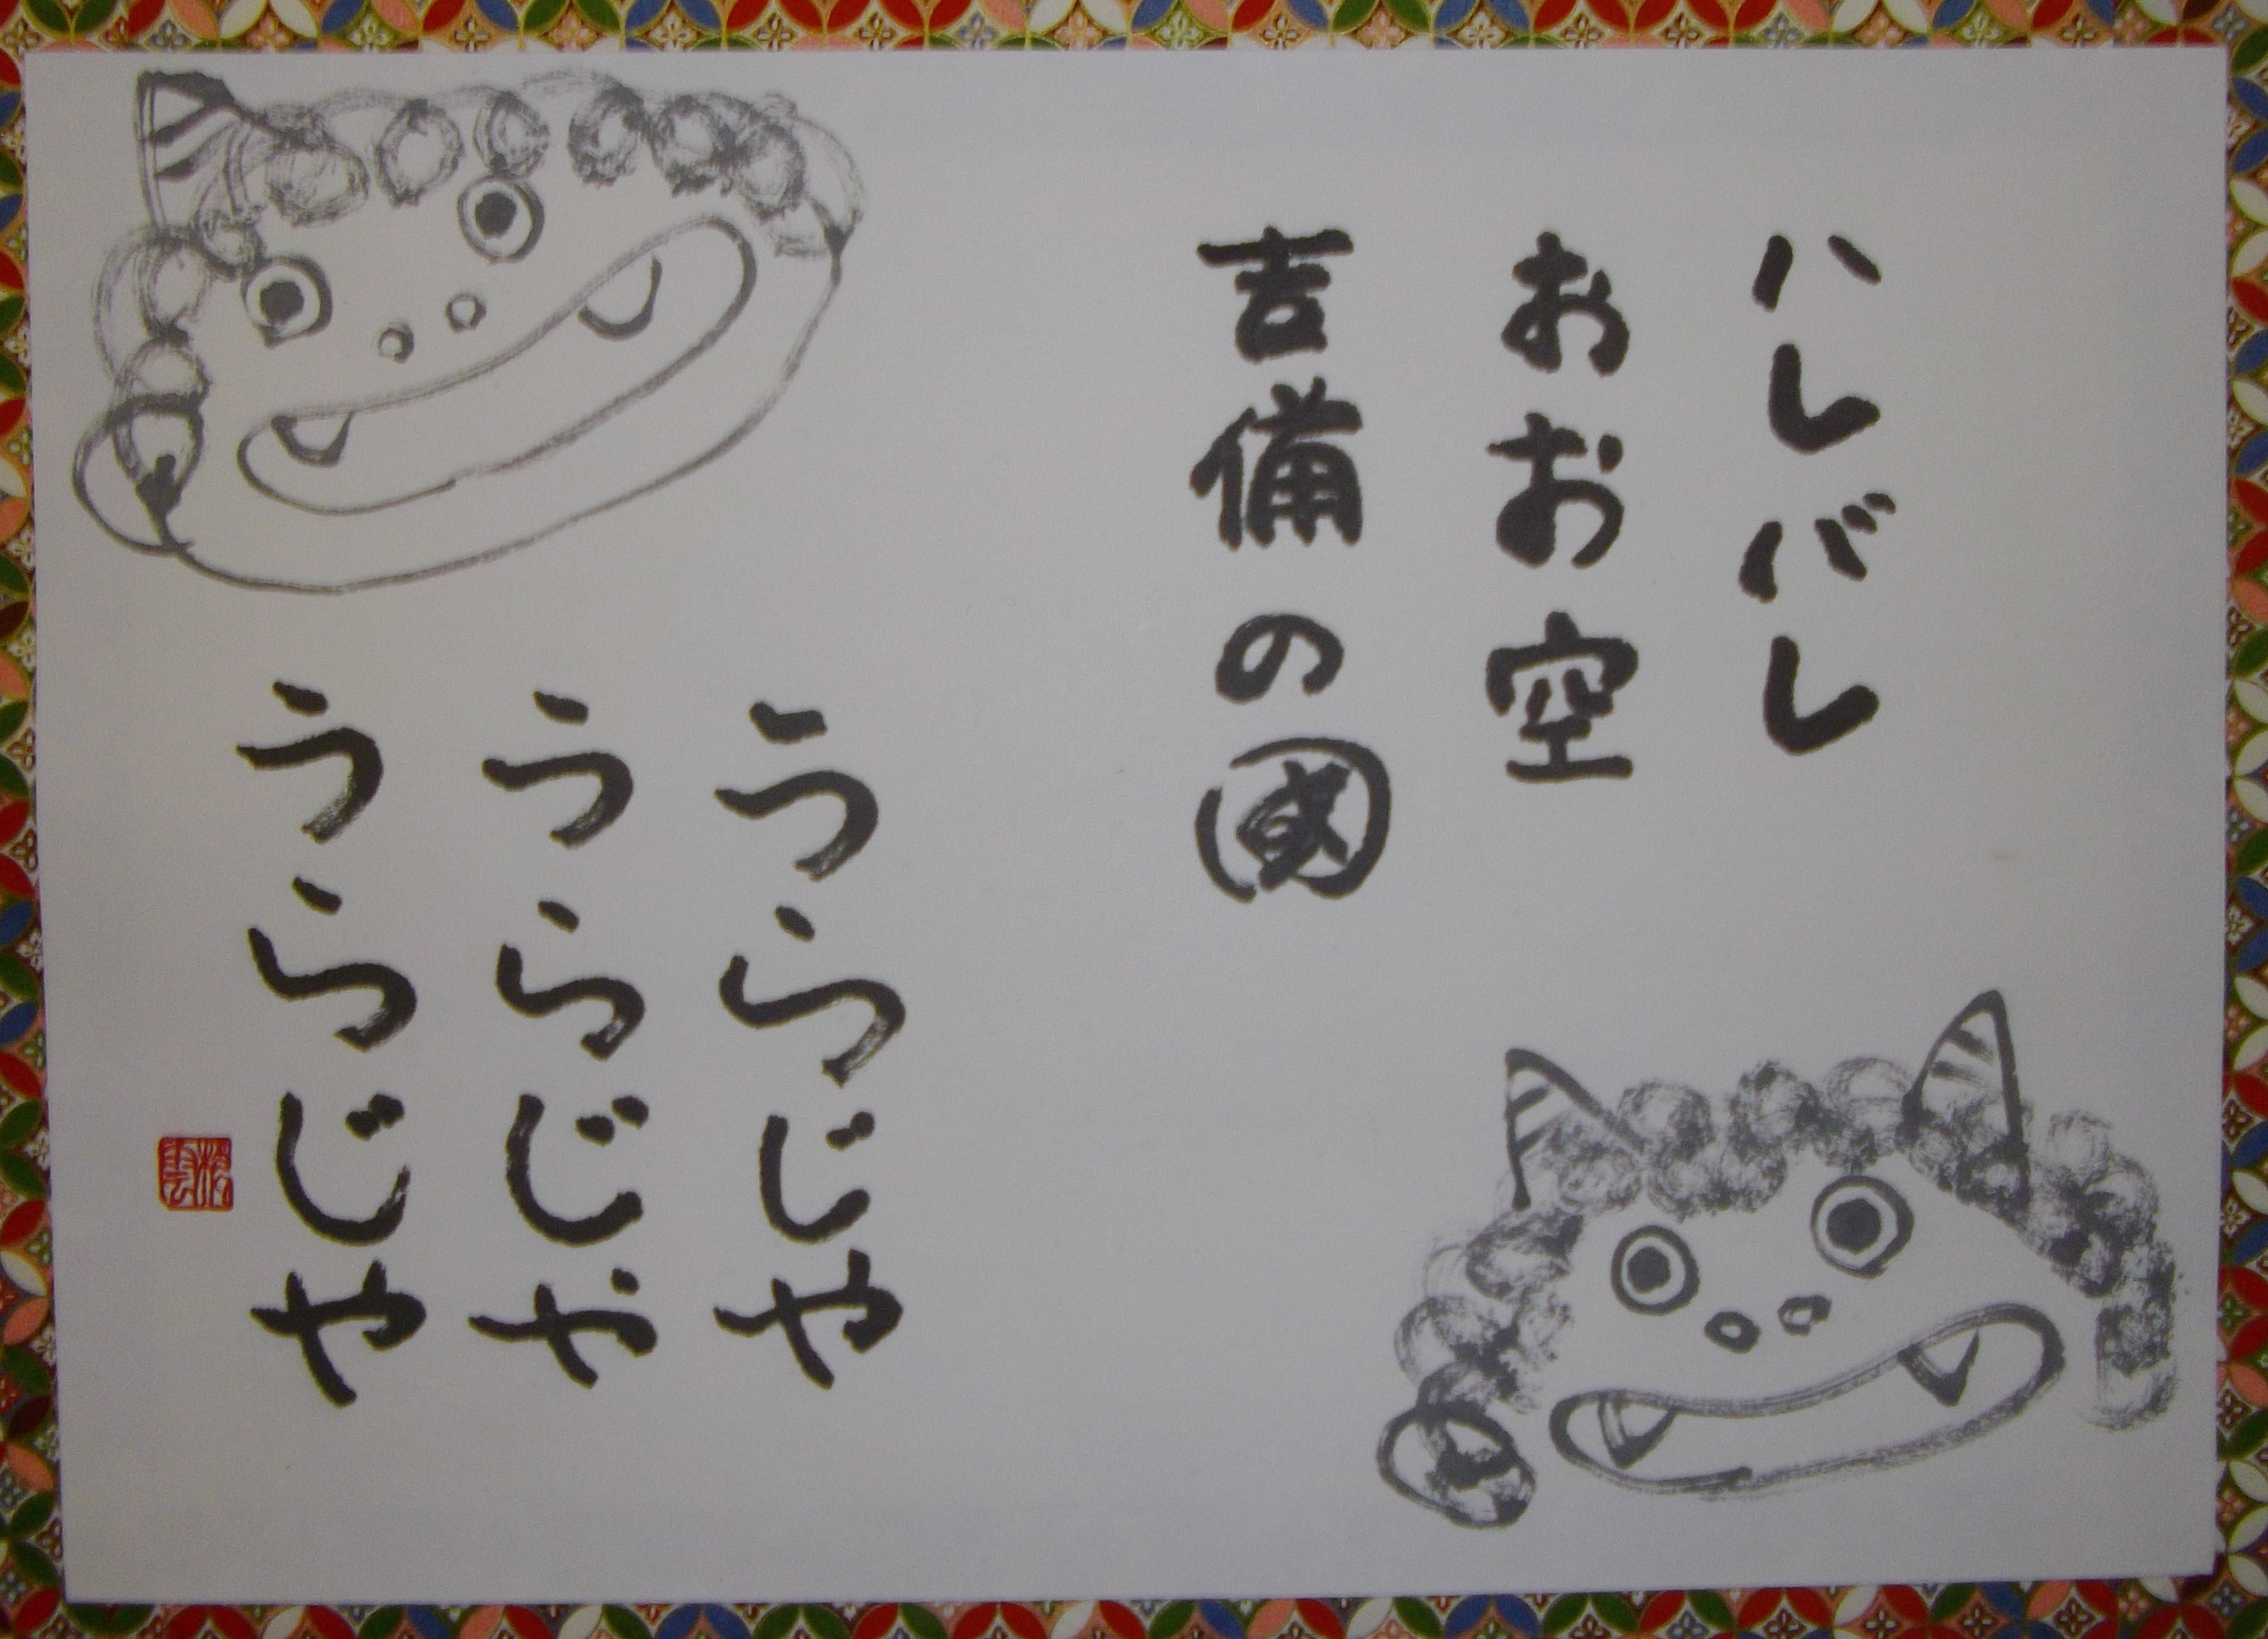 ハレバレ
おお空
吉備の國
うらじゃ
うらじゃ
うらじゃ